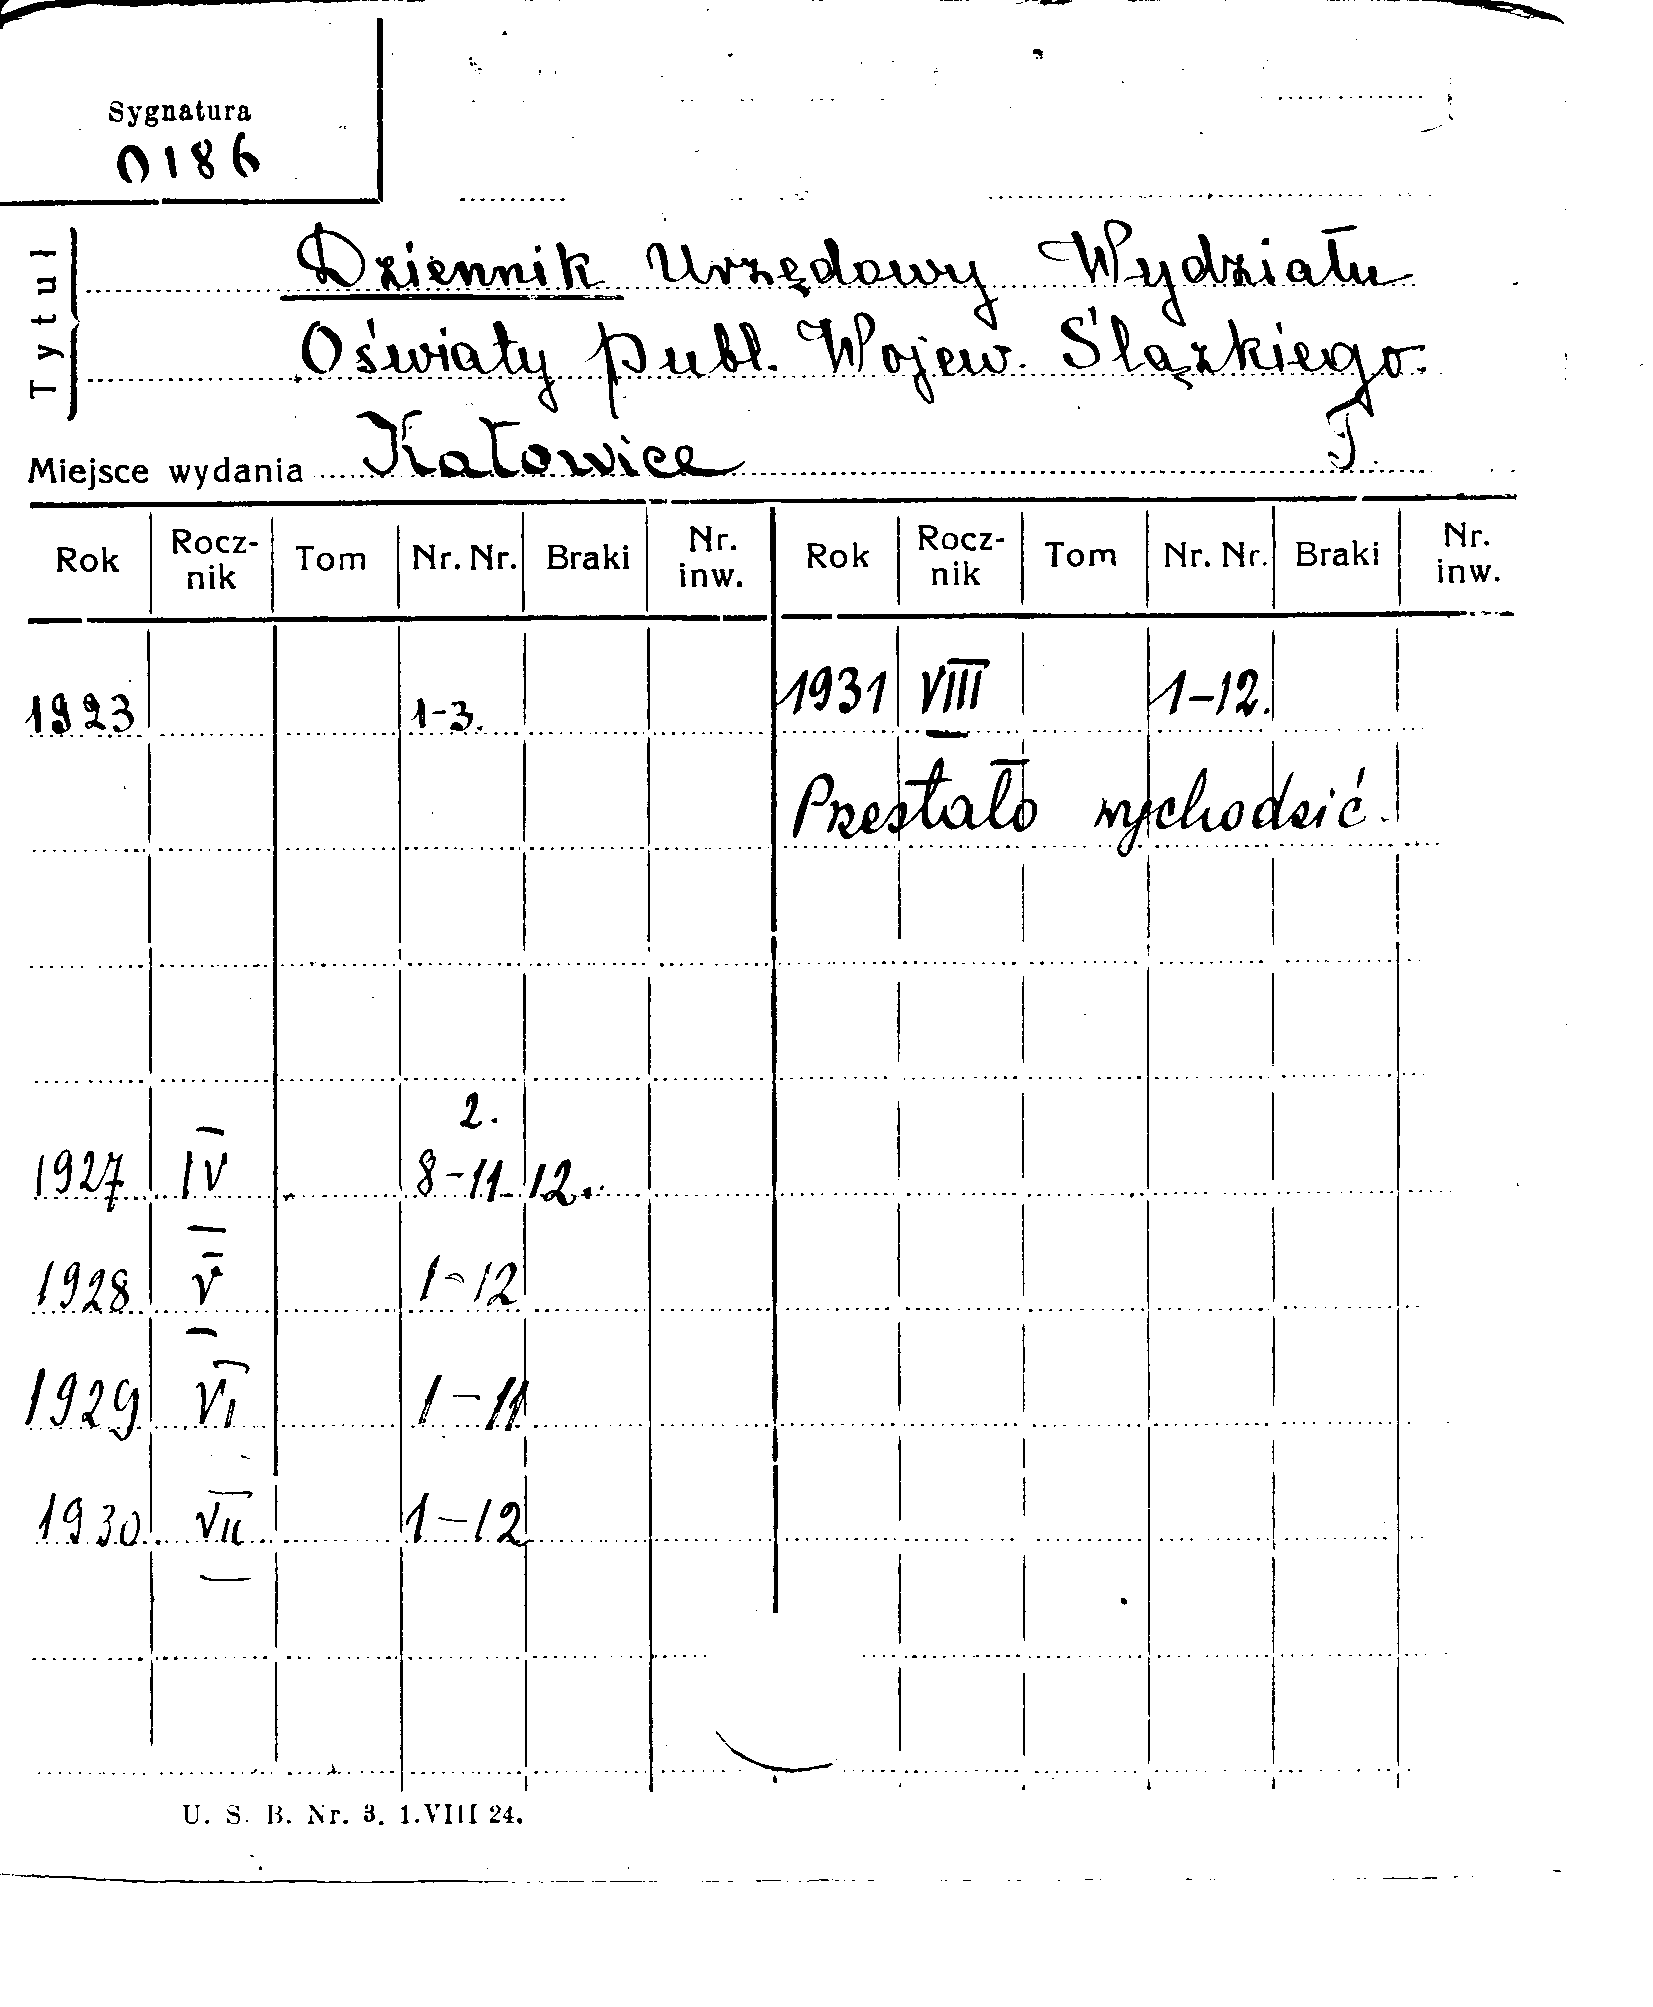 Sygnatura
0186
Tytuł
Dziennik Urzędowy Wydziału
Oświaty publ. Wojew. Ślązkiego.
Miejsce wydania Katowice T.
Rok Rocz-nik Tom Nr. Nr. Braki Nr. inw. Rok Rocz-nik Tom Nr. Nr. Braki Nr. inw.
1923 1-3. 1931 VIII 1-12.
Przestało wychodzić.
2.
1927 IV 8-11 12.
1928 V 1-12
1929 VI 1-11
1930 VII 1-12
U. S. B. Nr. 3. 1.VIII 24.